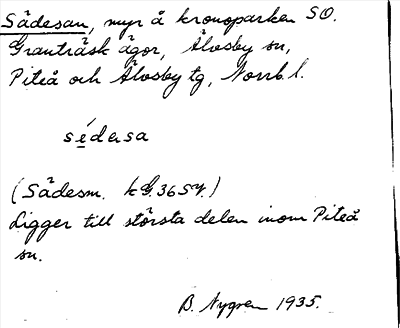 Sådesan, myr å kronoparken SO.
Granträsk ägor, Älvsby sn,
Piteå och Älvsby tg, Norrb. l.
sé̱dɛrsa
(Sådesm. kG. 36 Sy.)
Ligger till största delen inom Piteå
sn.
B. Nygren 1935.